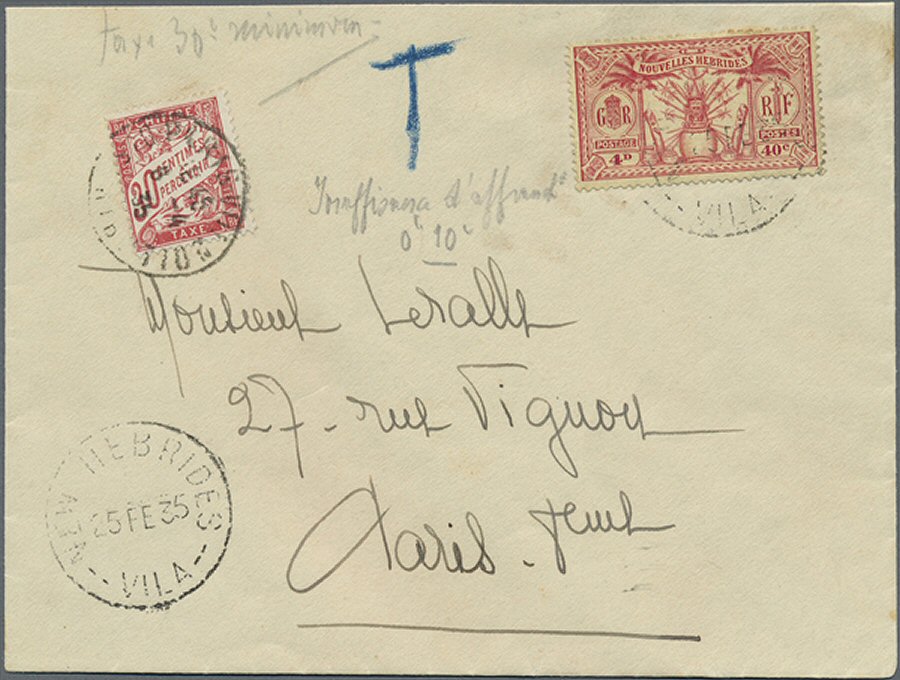 taxe 30c minimum
T
NOUVELLES HEBRIDES
G R
R F
POSTAGE
POSTES
4D
40c
30
CENTIMES
PERCEVOIR
TAXE
VILA
Insuffisance d'affrancht
0f 10c
Monsieur
27 - rue Vignon
Paris -
NEW HEBRIDES
25 FE 35
-- VILA --